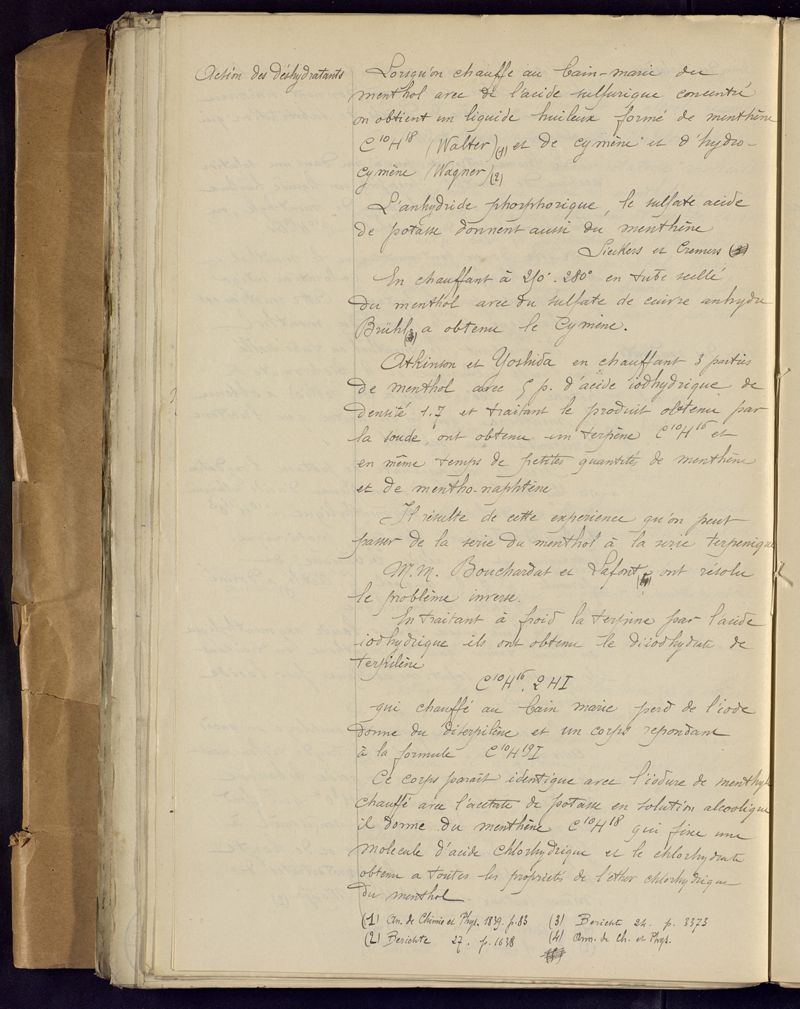 Action des déshydratants
Lorsqu'on chauffe au bain-marie du
menthol avec de l'acide sulfurique concentré
on obtient un liquide huileux formé de menthène
C10H18 (Walter)(1) et de cymène et d'hydro-
cymène (Wagner)(2)
L'anhydride phosphorique, le sulfate acide
de potasse donnent aussi du menthène
Sieckers et Cremers
En chauffant à 250°-280° en tube scellé
du menthol avec du sulfate de cuivre anhydre
Brühl(3) a obtenu le Cymène.
Atkinson et Yoshida en chauffant 3 parties
de menthol avec 5 p. d'acide iodhydrique de
densité 1.7 et traitant le produit obtenu par
la soude, ont obtenu un terpène C10H16 et
en même temps de petites quantités de menthène
et de mentho-naphtène
Il résulte de cette expérience qu'on peut
passer de la serie du menthol à la serie terpenique
M.M. Bouchardat et Lafont(4) ont résolu
le problème inverse.
En traitant à froid la terpine par l'acide
iodhydrique ils ont obtenu le diiodhydrate de
terpilène
C10H16. 2HI
qui chauffé au bain marie perd de l'iode
donne du diterpilène et un corps repondant
à la formule C10H19I
Ce corps parait identique avec l'iodure de menthyle
chauffé avec l'acetate de potasse en solution alcoolique
il donne du menthène C10H18 qui fixe une
molecule d'acide chlorhydrique et le chlorhydrate
obtenu a toutes les propriétés de l'ether chlorhydrique
du menthol
(1) An. de Chimie et Phys. 1839. p. 83
(2) Berichte 27. p. 1638
(3) Berichte 24. p. 3373
(4) Ann. de Ch. et Phys.